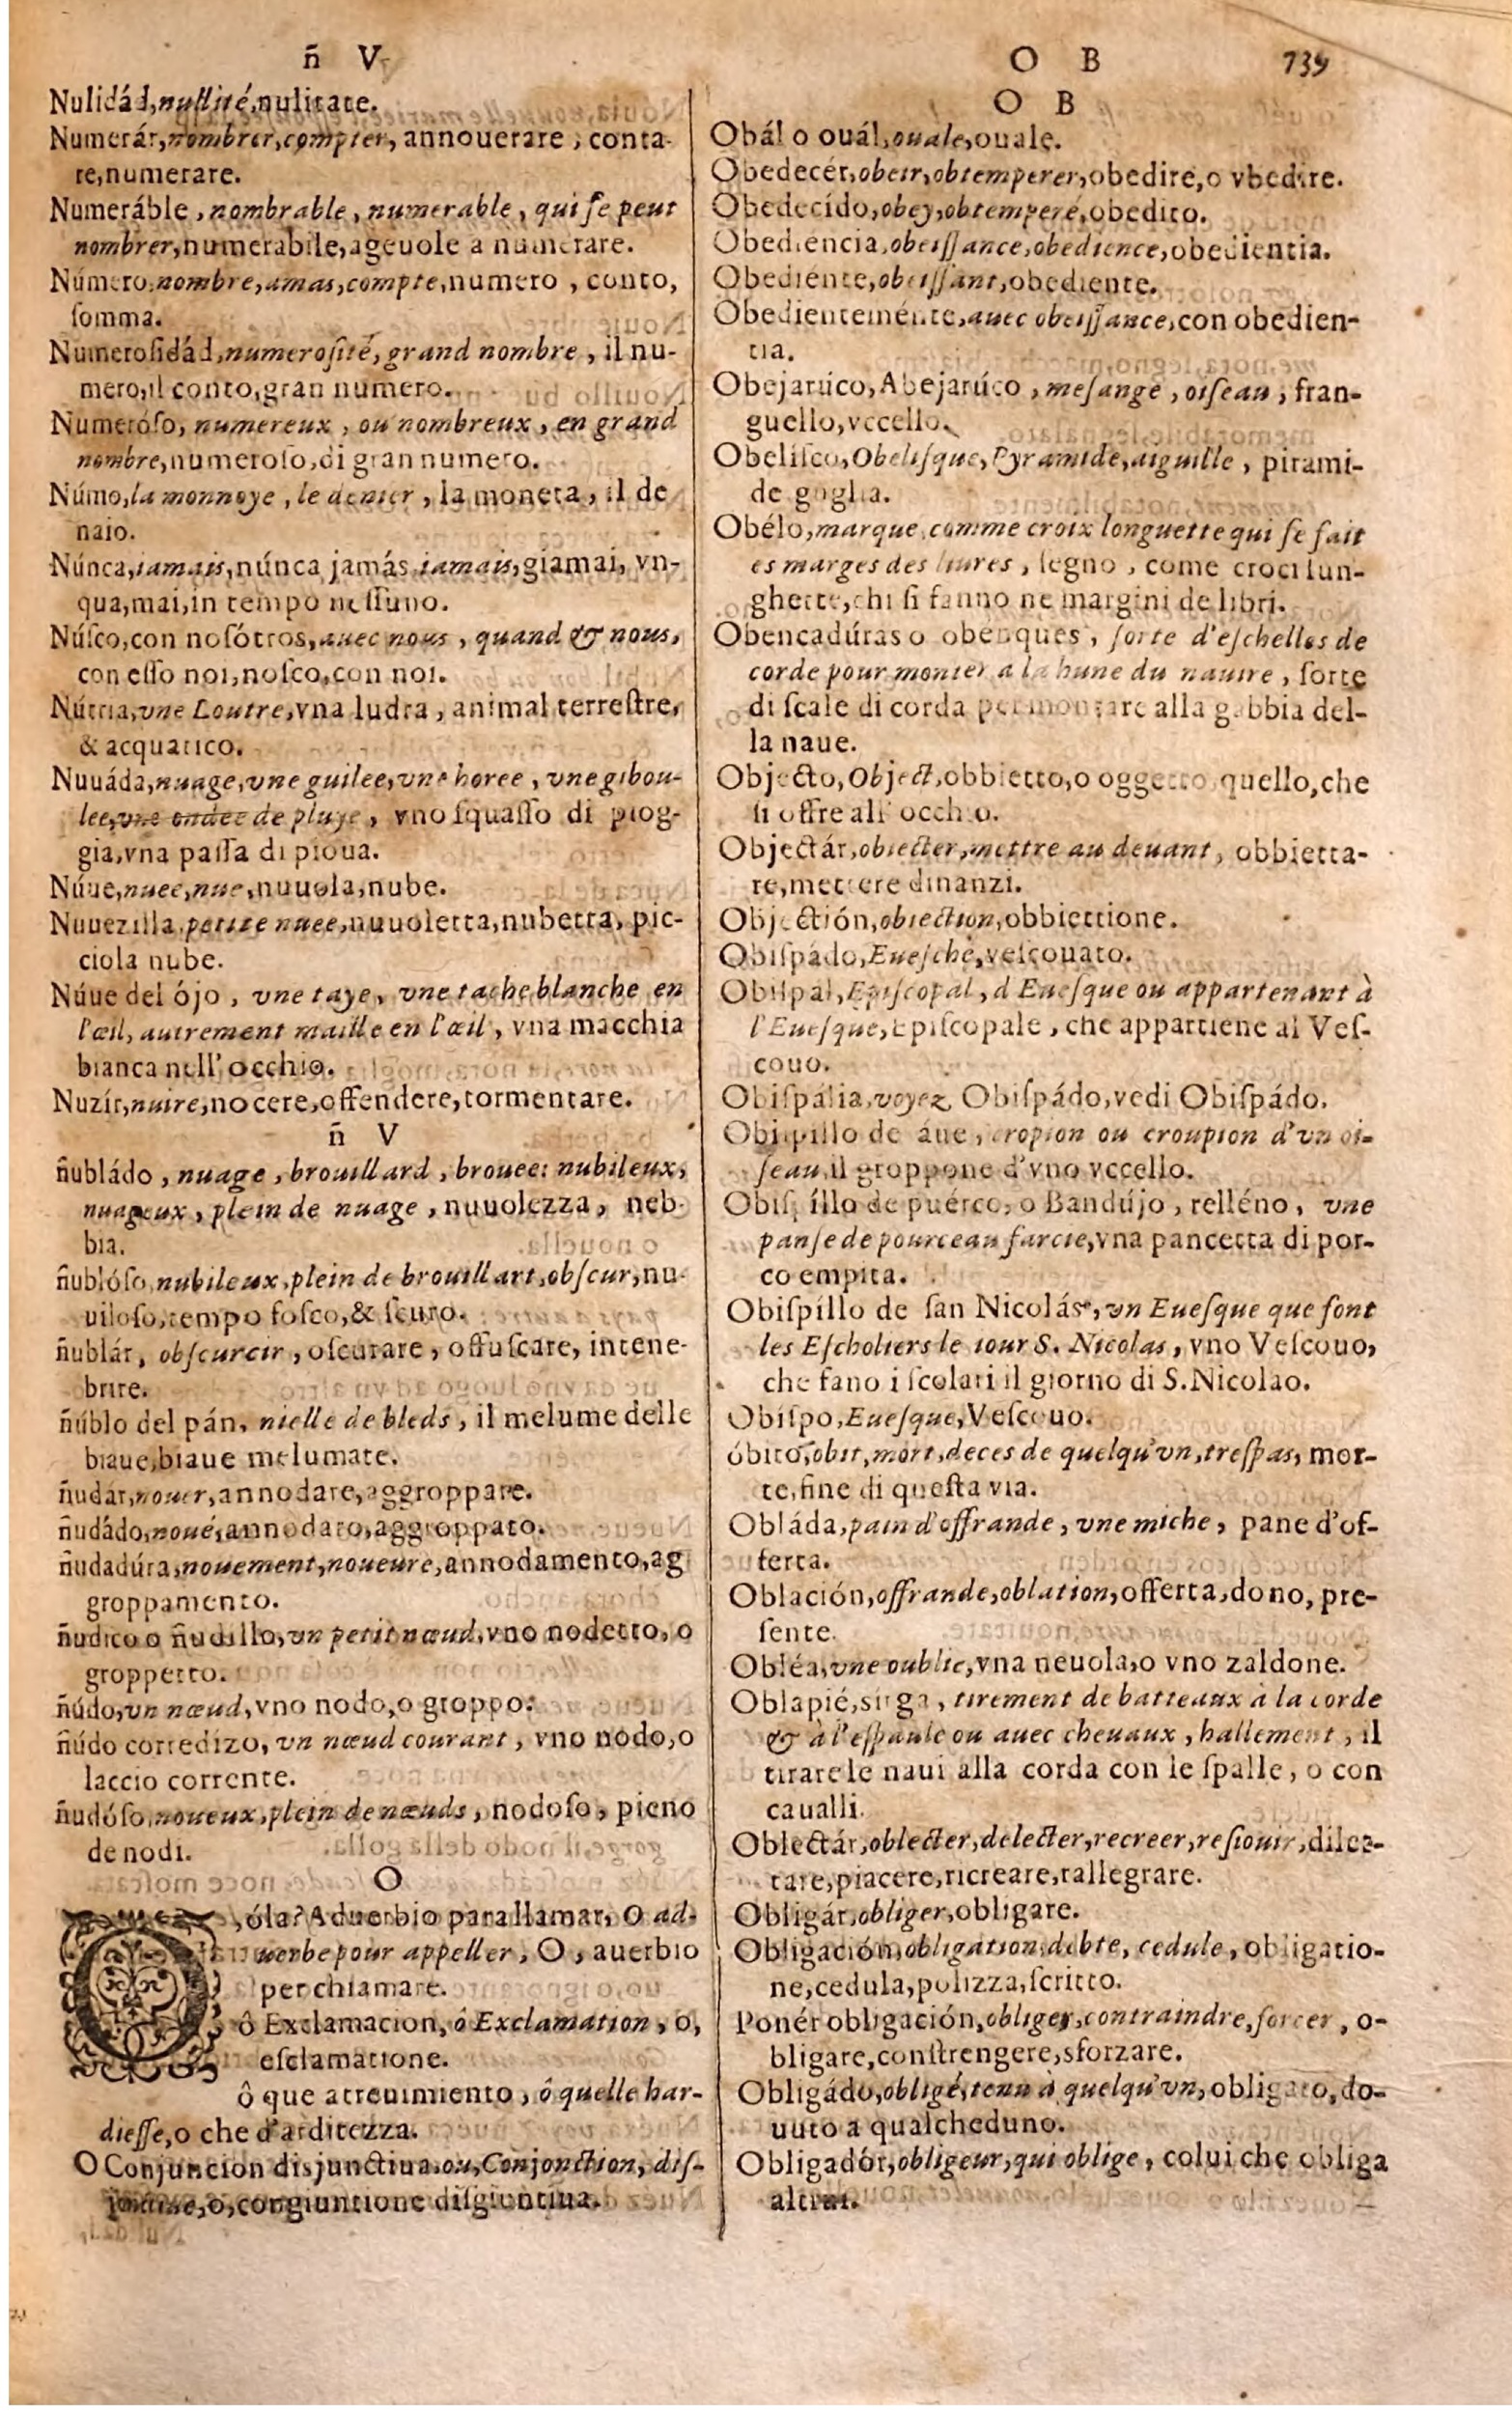 ñ V
Nulidád, nullité, nulitate.
Numerár, nombrer, compter, annouerare, conta-
re, numerare.
Numeráble, nombrable, numerable, qui ſe peut
nombrer, numerabile, ageuole a numerare.
Número, nombre, amas, compte, numero, conto,
ſomma.
Numeroſidád, numeroſité, grand nombre, il nu-
mero, il conto, gran numero.
Numeróſo, numereux, ou nombreux, en grand
nombre, numeroſo, di gran numero.
Númo, la monnoye, le denier, la moneta, il de
naio.
Núnca, iamais, núnca jamás iamais, giamai, vn-
qua, mai, in tempo neſſuno.
Núſco, con noſótros, auec nous, quand & nous,
con eſſo noi, noſco, con noi.
Nútria, vne Loutre, vna ludra, animal terreſtre,
& acquatico.
Nuuáda, nuage, vne guilee, vne horee, vne gibou-
lee, vne ondee de pluye, vno ſquaſſo di piog-
gia, vna paſſa di pioua.
Núue, nuee, nue, nuuola, nube.
Nuuezilla, petite nuee, nuuoletta, nubetta, pic-
ciola nube.
Núue del ójo, vne taye, vne tache blanche en
l'œil, autrement maille en l'œil, vna macchia
bianca nell' occhio.
Nuzír, nuire, nocere, offendere, tormentare.
ñ V
ñubládo, nuage, brouillard, brouee: nubileux,
nuageux, plein de nuage, nuuolezza, neb-
bia.
ñublóſo, nubileux, plein de brouillart, obſcur, nu-
uiloſo, tempo foſco, & ſcuro.
ñublár, obſcurcir, oſcurare, offuſcare, intene-
brire.
ñúblo del pán, nielle de bleds, il melume delle
biaue, biaue melumate.
ñudár, nouer, annodare, aggroppare.
ñudádo, noué, annodato, aggroppato.
ñudadúra, nouement, noueure, annodamento, ag
groppamento.
ñudico o ñudillo, vn petit nœud, vno nodetto, o
groppetto.
ñúdo, vn nœud, vno nodo, o groppo.
ñúdo corredizo, vn nœud courant, vno nodo, o
laccio corrente.
ñudóſo, noueux, plein de nœuds, nodoſo, pieno
de nodi.
O
O, óla? Aduerbio para llamar, O ad-
uerbe pour appeller, O, auerbio
per chiamare.
ô Exclamacion, ô Exclamation, o,
eſclamatione.
ô que atreuimiento, ô quelle har-
dieſſe, o che d'arditezza.
O Conjuncion disjunctiua, ou, Conjonction, diſ-
jonctiue, o, congiuntione diſgiuntiua.
O B 739
O B
Obál o ouál, ouale, ouale.
Obedecér, obeïr, obtemperer, obedire, o vbedire.
Obedecído, obey, obtemperé, obedito.
Obediencia, obeiſſance, obedience, obedientia.
Obediénte, obeiſſant, obediente.
Obedienteménte, auec obeiſſance, con obedien-
tia.
Obejarúco, Abejarúco, meſange, oiſeau, fran-
guello, vccello.
Obeliſco, Obeliſque, Pyramide, aiguille, pirami-
de goglia.
Obélo, marque comme croix longuette qui ſe fait
es marges des liures, ſegno, come croci lun-
ghette, chi ſi fanno ne margini de libri.
Obencadúras o obenques, ſorte d'eſchelles de
corde pour monter a la hune du nauire, ſorte
di ſcale di corda per montare alla gabbia del-
la naue.
Objecto, Object, obbietto, o oggetto quello, che
ſi offre all' occhio.
Objectár, obiecter, mettre au deuant, obbietta-
re, mettere dinanzi.
Objectión, obiection, obbiettione.
Obiſpádo, Eueſché, veſcouato.
Obiſpál, Epiſcopal, d Eueſque ou appartenant à
l'Eueſque, Epiſcopale, che appartiene al Veſ-
couo.
Obiſpália, voyez Obiſpádo, vedi Obiſpádo.
Obiſpillo de áue, cropion ou croupion d'vn oi-
ſeau, il groppone d'vno vccello.
Obiſpíllo de puérco, o Bandújo, relléno, vne
panſe de pourceau farcie, vna pancetta di por-
co empita.
Obiſpíllo de ſan Nicolás, vn Eueſque que font
les Eſcholiers le iour S. Nicolas, vno Veſcouo,
che fano i ſcolati il giorno di S. Nicolao.
Obíſpo, Eueſque, Veſcouo.
óbito, obit, mort, deces de quelqu'vn, treſpas, mor-
te, fine di queſta via.
Obláda, pain d'offrande, vne miche, pane d'of-
ferta.
Oblación, offrande, oblation, offerta, dono, pre-
ſente.
Obléa, vne oublie, vna neuola, o vno zaldone.
Oblapié, sirga, tirement de batteaux à la corde
& à l'eſpaule ou auec cheuaux, hallement, il
tirare le naui alla corda con le ſpalle, o con
caualli.
Oblectár, oblecter, delecter, recreer, reſiouir, dilet-
tare, piacere, ricreare, rallegrare.
Obligár, obliger, obligare.
Obligación, obligation, debte, cedule, obligatio-
ne, cedula, polizza, ſcritto.
Ponér obligación, obliger, contraindre, forcer, o-
bligare, conſtrengere, sforzare.
Obligádo, obligé, tenu à quelqu'vn, obligato, do-
uuto a qualcheduno.
Obligadór, obligeur, qui oblige, colui che obliga
altrui.